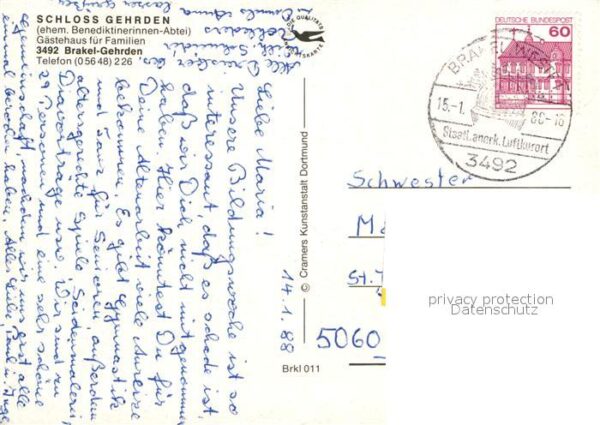 SCHLOSS GEHRDEN
(ehem. Benediktinerinnen-Abtei)
Gästehaus für Familien
3492 Brakel-Gehrden
Telefon (05648) 226
DEUTSCHE BUNDESPOST
60
15.-1.
88-18
Staatl. anerk. Luftkurort
3492
Liebe Maria!
Unsere Bildungswoche ist so
interessant, daß es schade ist,
daß wir Dich nicht mitgenommen
haben. Hier könntest Du für
Deine Altenarbeit viele Anreize
bekommen. Es gibt Gymnastik
und Tanz für Senioren, außerdem
altersgerechte Spiele, Seidenmalerei,
Diavorträge usw. Wir sind zu
29 Personen und eine sehr schöne
Gemeinschaft, nachdem wir uns erst alle
einmal berochen haben. Alles Liebe, Paul u. Inge
14.1.88
© Cramers Kunstanstalt Dortmund
Brkl 011
Schwester
St.
5060
privacy protection
Datenschutz